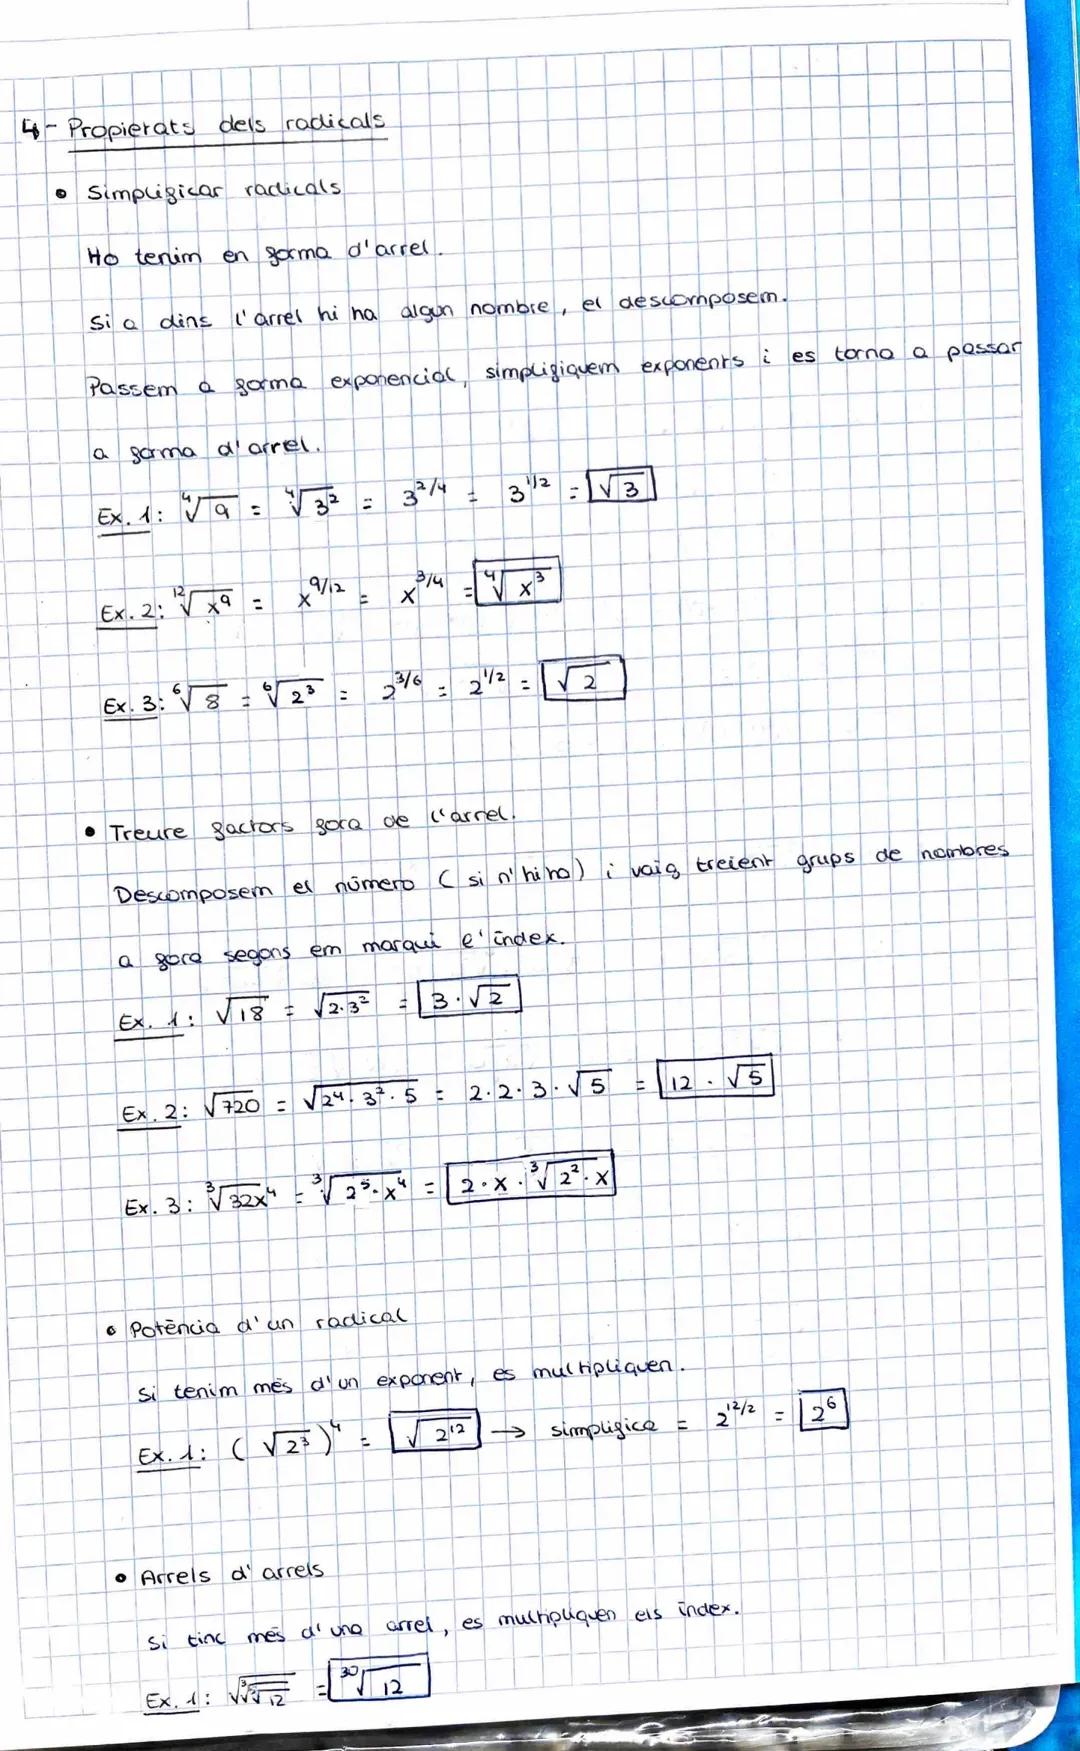 4- Propierats dels radicals
• Simplificar radicals
Ho tenim en forma d'arrel.
Si a dins l'arrel hi ha algun nombre, el descomposem.
Passem a forma exponencial, simplifiquem exponents i es torna a passar
a forma d'arrel.
Ex. 1: ⁴√9 = ⁴√3² = 3^2/4 = 3^1/2 = √3
Ex. 2: ¹²√x⁹ = x^9/12 = x^3/4 = ⁴√x³
Ex. 3: ⁶√8 = ⁶√2³ = 2^3/6 = 2^1/2 = √2
• Treure factors fora de l'arrel.
Descomposem el número (si n'hi ha) i vaig treient grups de nombres
a fora segons em marqui l'índex.
Ex. 1: √18 = √2·3² = 3·√2
Ex. 2: √720 = √2⁴·3²·5 = 2·2·3·√5 = 12·√5
Ex. 3: ³√32x⁴ = ³√2⁵·x⁴ = 2·x·³√2²·x
• Potència d'un radical
Si tenim més d'un exponent, es multipliquen.
Ex. 1: (√2³)⁴ = √2¹² → simplifica = 2^12/2 = 2⁶
• Arrels d'arrels
Si tinc més d'una arrel, es multipliquen els índex.
Ex. 1: = ³⁰√12